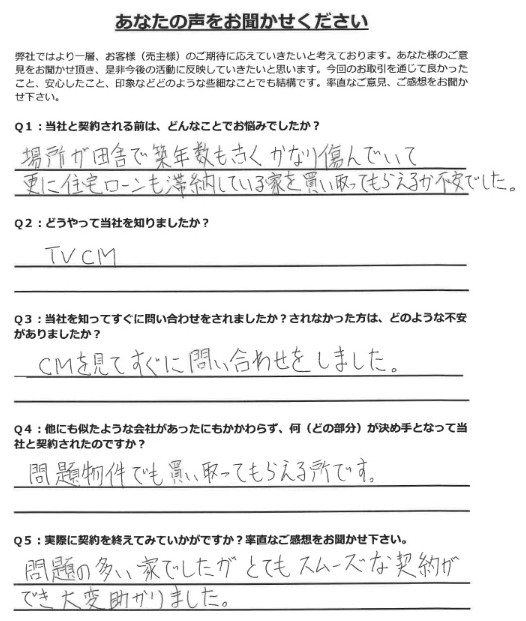 あなたの声をお聞かせください
弊社ではより一層、お客様（売主様）のご期待に応えていきたいと考えております。あなた様のご意
見をお聞かせ頂き、是非今後の活動に反映していきたいと思います。今回のお取引を通じて良かった
こと、安心したこと、印象などどのような些細なことでも結構です。率直なご意見、ご感想をお聞か
せ下さい。
Q1：当社と契約される前は、どんなことでお悩みでしたか？
場所が田舎で築年数も古くかなり傷んでいて
更に住宅ローンも滞納している家を買い取ってもらえるか不安でした。
Q2：どうやって当社を知りましたか？
TVCM
Q3：当社を知ってすぐに問い合わせをされましたか？されなかった方は、どのような不安
がありましたか？
CMを見てすぐに問い合わせをしました。
Q4：他にも似たような会社があったにもかかわらず、何（どの部分）が決め手となって当
社と契約されたのですか？
問題物件でも買い取ってもらえる所です。
Q5：実際に契約を終えてみていかがですか？率直なご感想をお聞かせ下さい。
問題の多い家でしたがとてもスムーズな契約が
でき大変助かりました。